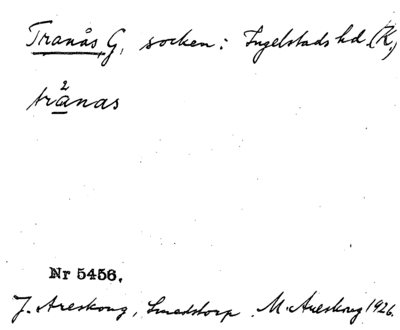 Tranås, G, socken: Ingelstads hd. (K.)
2
trånas
Nr 5456.
J. Areskoug, Smedstorp. M. Areskoug 1926.